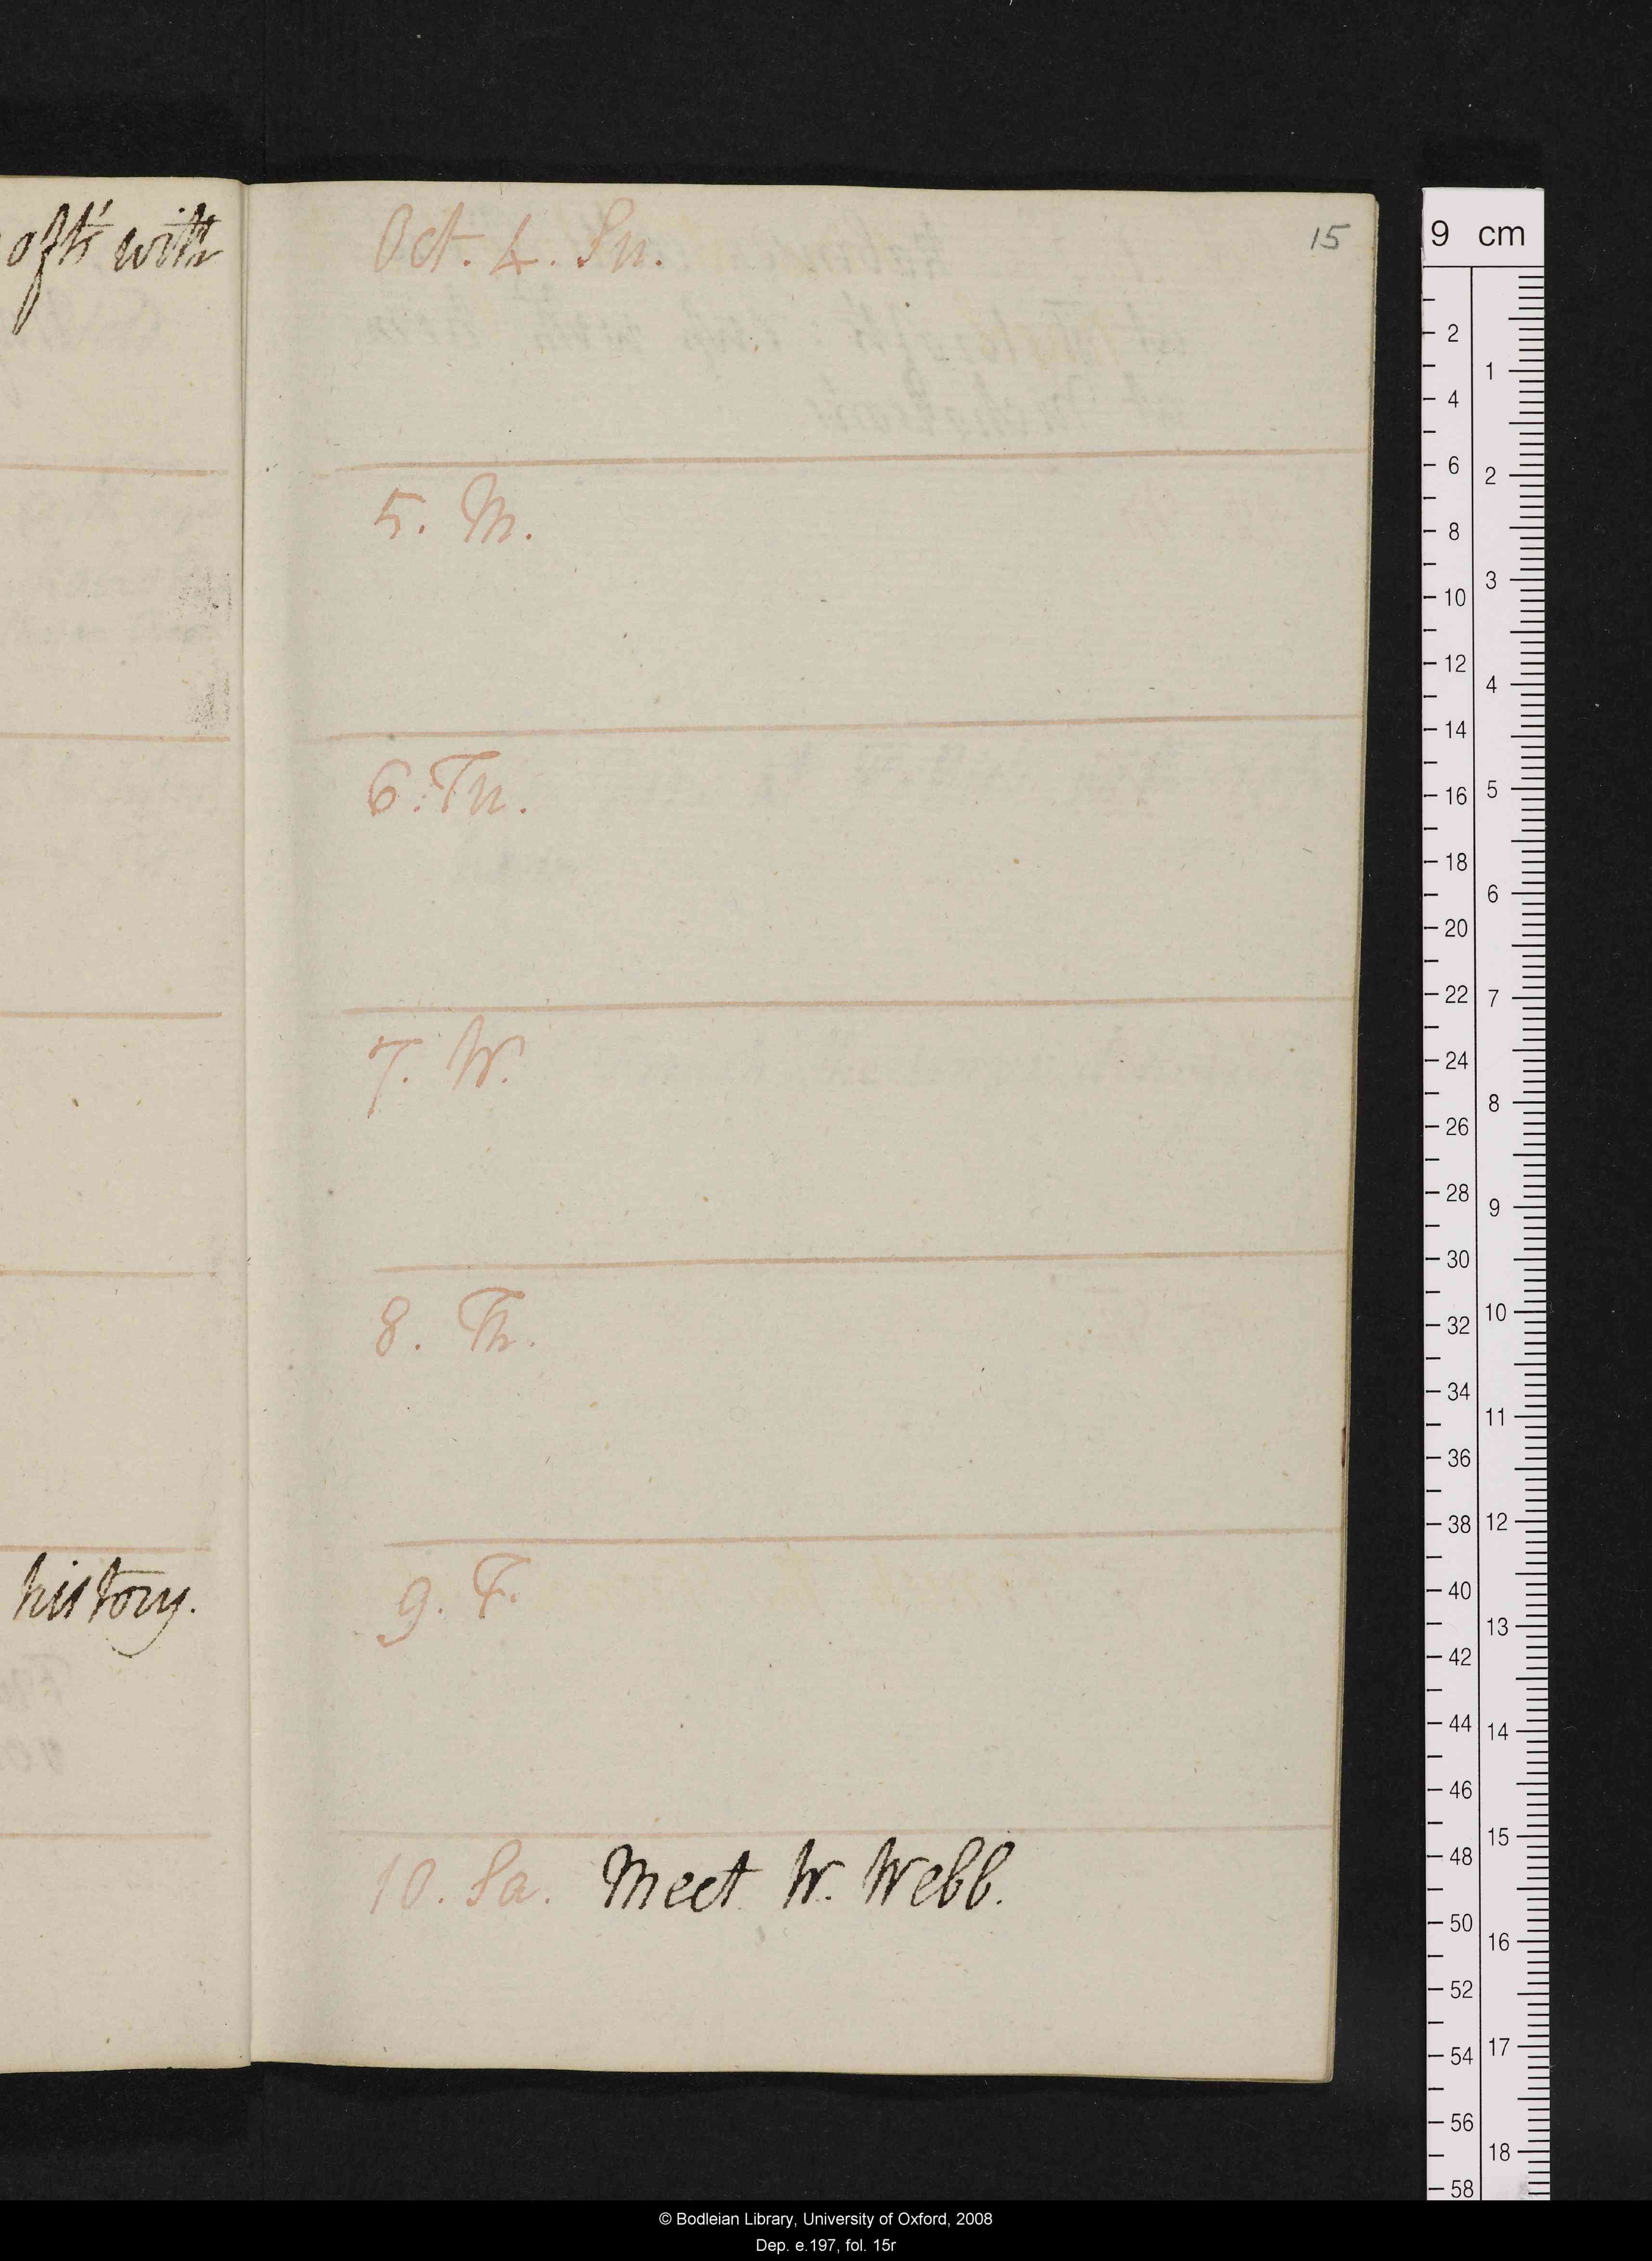 with
history.
15
Oct. 4. Su.
5. M.
6. Tu.
7. W.
8. Th.
9. F.
10. Sa. Meet W. Webb.
9 cm
2
4
6
8
10
12
14
16
18
20
22
24
26
28
30
32
34
36
38
40
42
44
46
48
50
52
54
56
58
1
2
3
4
5
6
7
8
9
10
11
12
13
14
15
16
17
18
© Bodleian Library, University of Oxford, 2008
Dep. e.197, fol. 15r